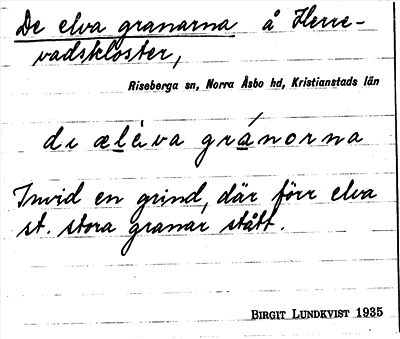 De elva granarna å Herre-
vadskloster,
Riseberga sn, Norra Åsbo hd, Kristianstads län
di æléva gránorna
Invid en grind, där förr elva
st. stora granar stått.
BIRGIT LUNDKVIST 1935